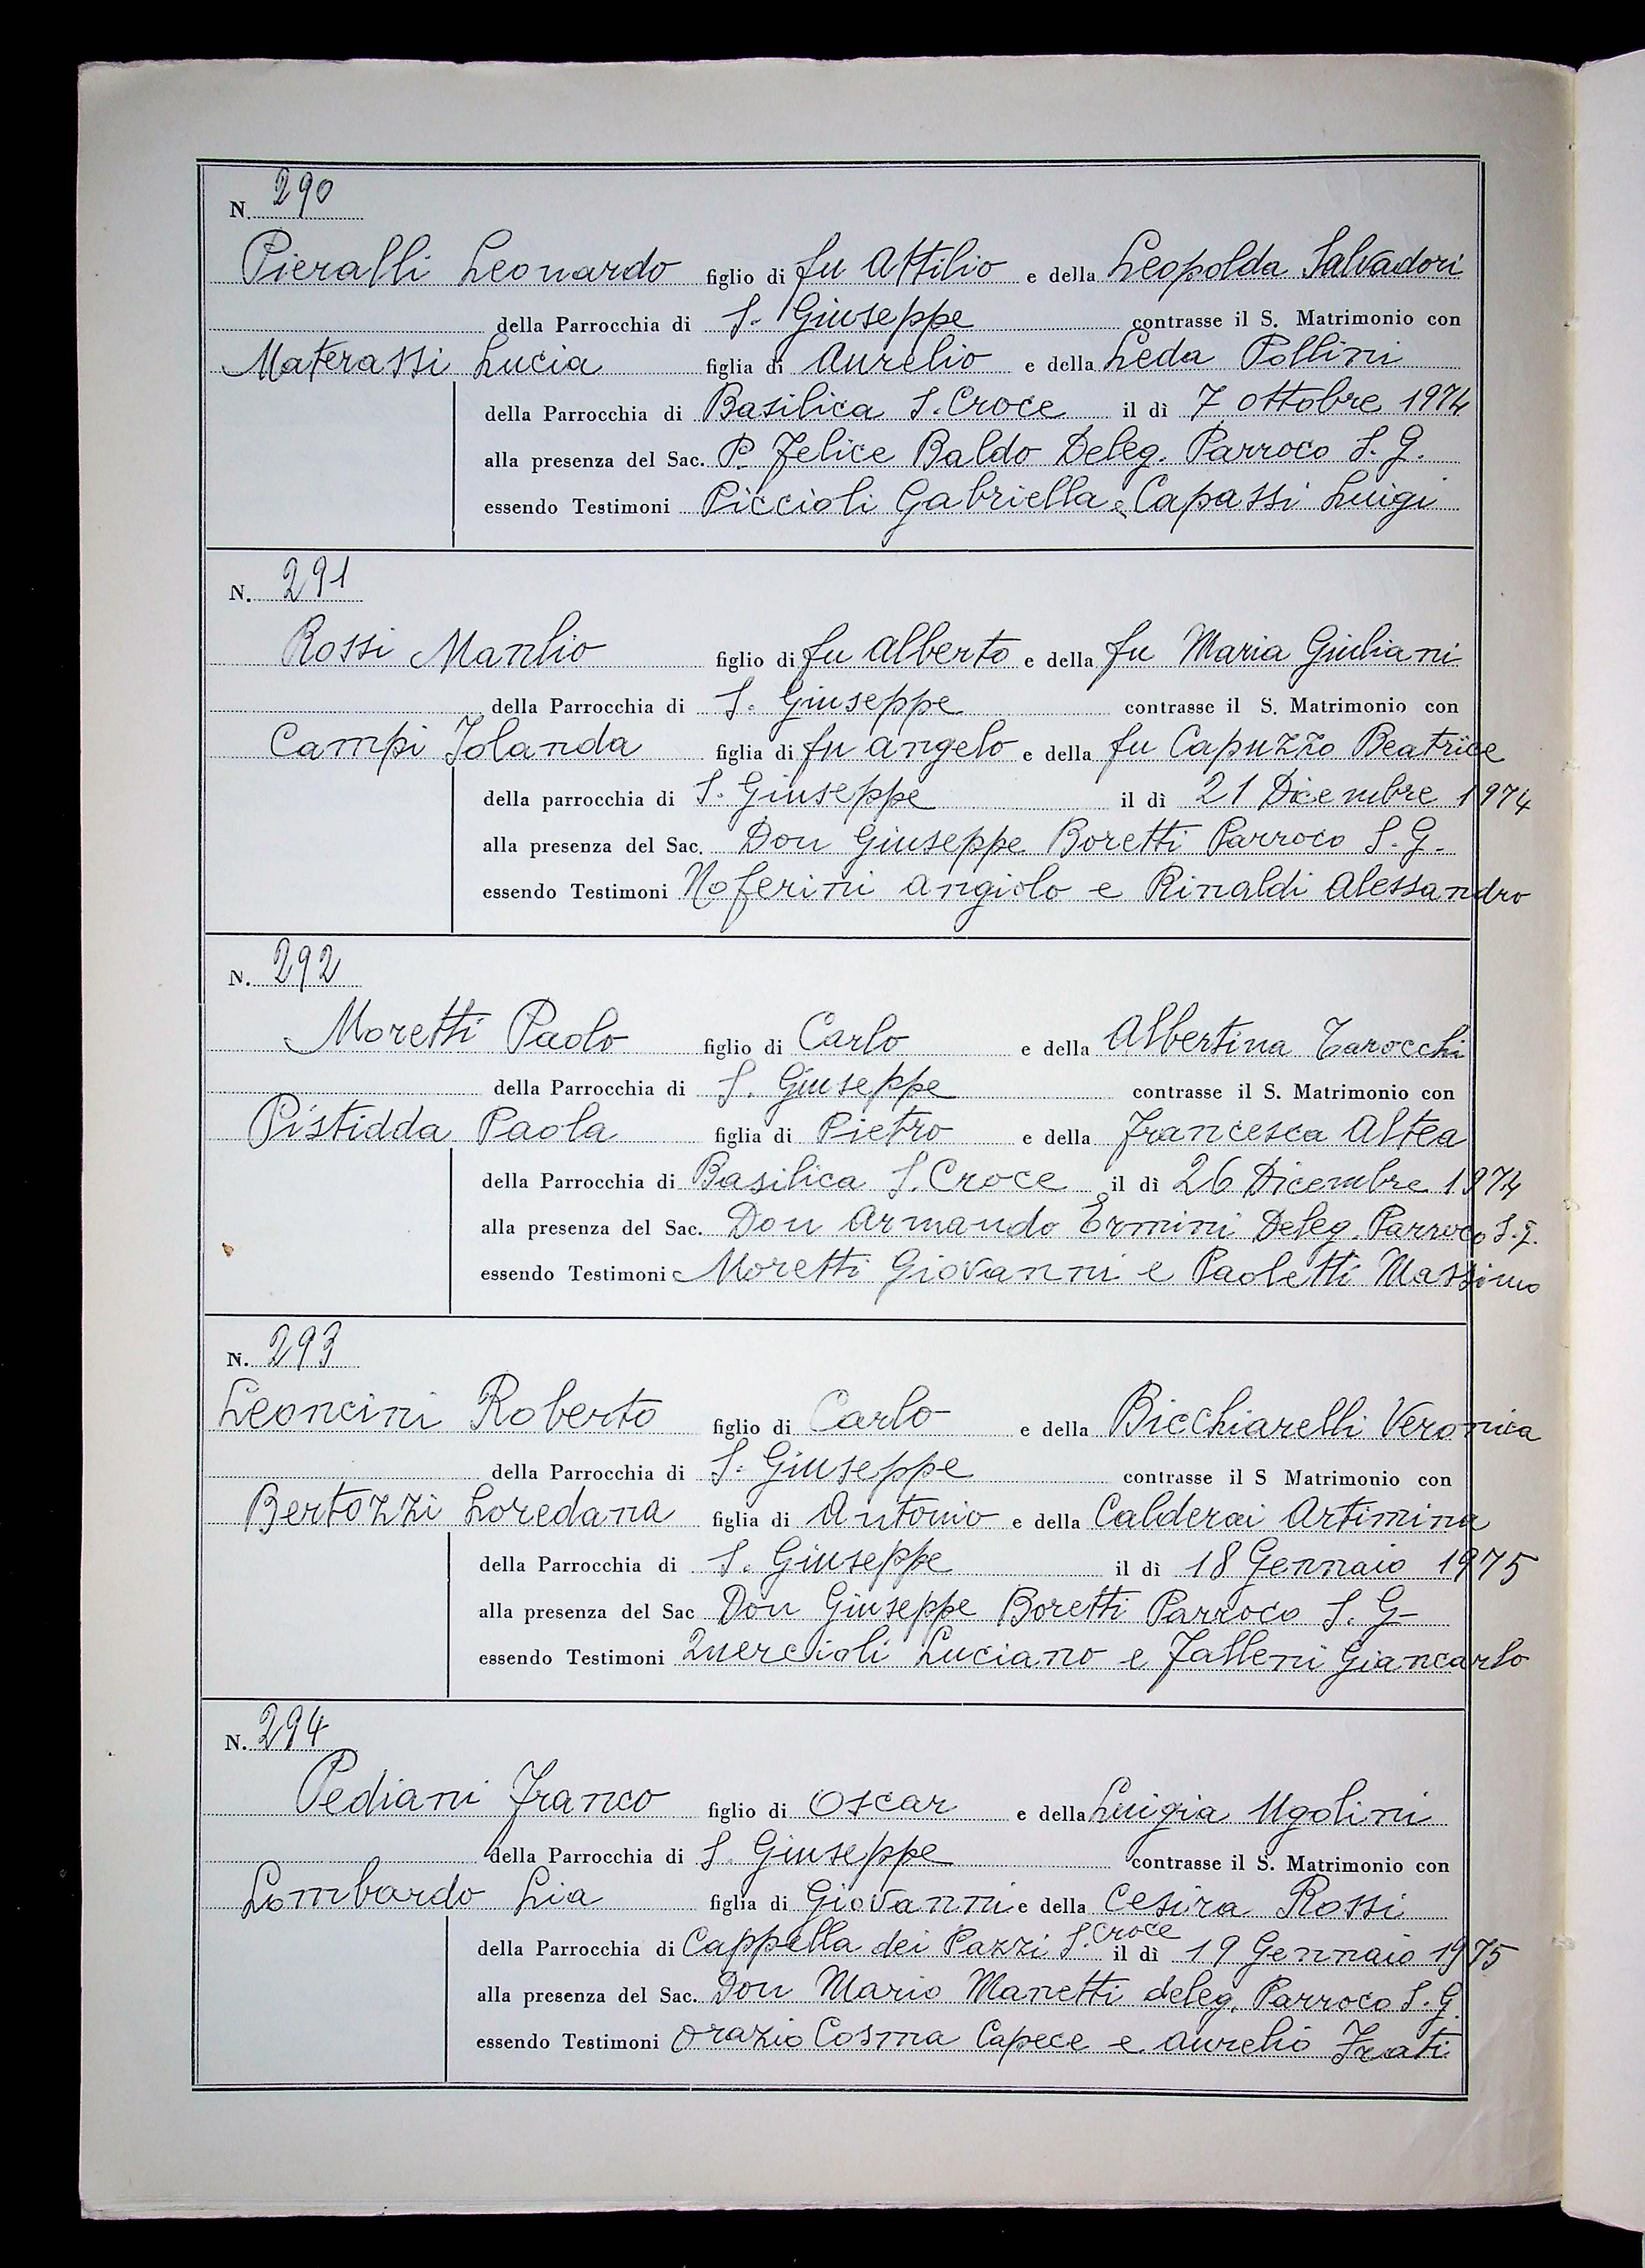 N. 290
Pieralli Leonardo figlio di fu Attilio e della Leopolda Salvadori
della Parrocchia di S. Giuseppe contrasse il S. Matrimonio con
Materassi Lucia figlia di Aurelio e della Leda Pollini
della Parrocchia di Basilica S. Croce il dì 7 ottobre 1974
alla presenza del Sac. P. Felice Baldo Deleg. Parroco S. G.
essendo Testimoni Piccioli Gabriella e Capassi Luigi
N. 291
Rossi Manlio figlio di fu Alberto e della fu Maria Giuliani
della Parrocchia di S. Giuseppe contrasse il S. Matrimonio con
Campi Jolanda figlia di fu Angelo e della fu Capuzzo Beatrice
della parrocchia di S. Giuseppe il dì 21 Dicembre 1974
alla presenza del Sac. Don Giuseppe Boretti Parroco S. G.
essendo Testimoni Noferini Angiolo e Rinaldi Alessandro
N. 292
Moretti Paolo figlio di Carlo e della Albertina Tarocchi
della Parrocchia di S. Giuseppe contrasse il S. Matrimonio con
Pistidda Paola figlia di Pietro e della Francesca Altea
della Parrocchia di Basilica S. Croce il dì 26 Dicembre 1974
alla presenza del Sac. Don Armando Ermini Deleg. Parroco S. G.
essendo Testimoni Moretti Giovanni e Paoletti Massimo
N. 293
Leoncini Roberto figlio di Carlo e della Bicchiarelli Veronica
della Parrocchia di S. Giuseppe contrasse il S Matrimonio con
Bertozzi Loredana figlia di Antonio e della Calderai Artimina
della Parrocchia di S. Giuseppe il dì 18 Gennaio 1975
alla presenza del Sac Don Giuseppe Boretti Parroco S. G-
essendo Testimoni Quercioli Luciano e Falleni Giancarlo
N. 294
Pediani Franco figlio di Oscar e della Luigia Ugolini
della Parrocchia di S. Giuseppe contrasse il S. Matrimonio con
Lombardo Lia figlia di Giovanni e della Cesira Rossi
della Parrocchia di Cappella dei Pazzi S. Croce il dì 19 Gennaio 1975
alla presenza del Sac. Don Mario Manetti deleg. Parroco S. G.
essendo Testimoni Orazio Cosma Capece e Aurelio Frati